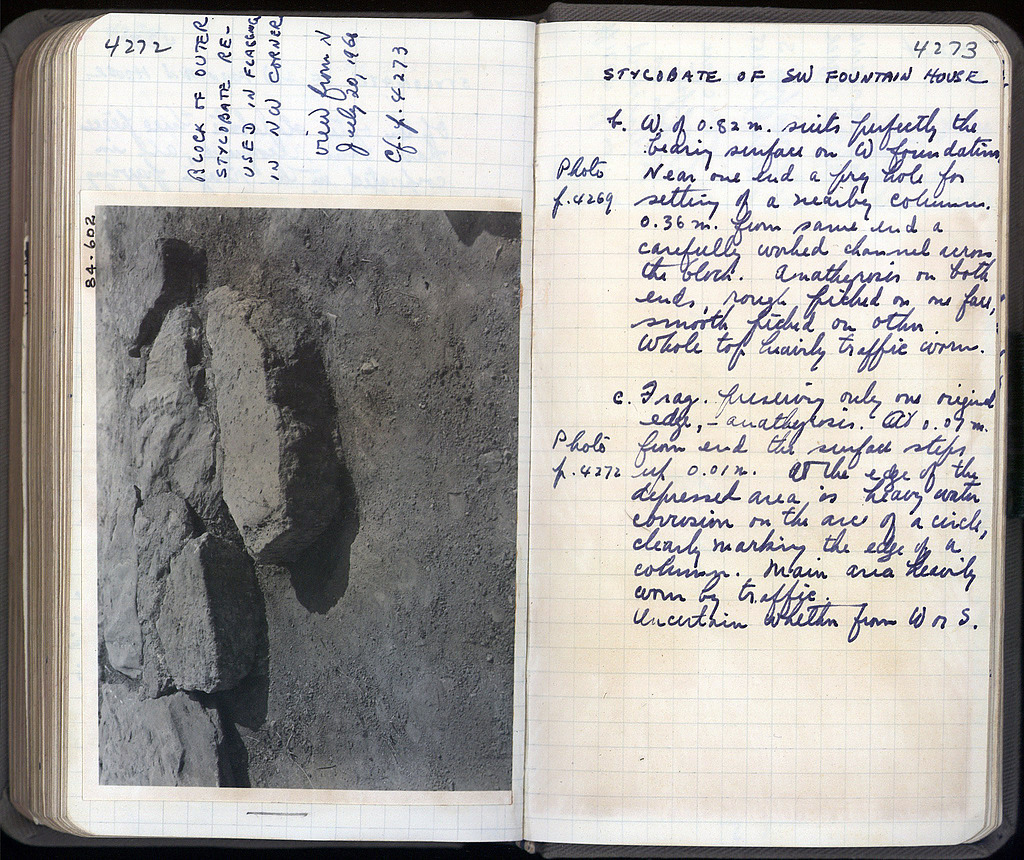 4272
BLOCK OF OUTER
STYLOBATE RE-
USED IN FLAGGING
IN NW CORNER
view from N
July 20, 1960
Cf. p. 4273
84-602
4273
STYLOBATE OF SW FOUNTAIN HOUSE
b. W. of 0.82 m. suits perfectly the
bearing surface on W foundation.
Photo Near one end a pry hole for
p. 4269 setting of a nearby column.
0.36 m. from same end a
carefully worked channel across
the block. Anathyrosis on both
ends, rough picked on one face,
smooth picked on other.
Whole top heavily traffic worn.
c. Frag. preserving only one original
edge, - anathyrosis. At 0.07 m.
Photo from end the surface steps
p. 4272 up 0.01 m. At the edge of the
depressed area is heavy water
corrosion on the arc of a circle,
clearly marking the edge of a
column. Main area heavily
worn by traffic.
Uncertain whether from W or S.